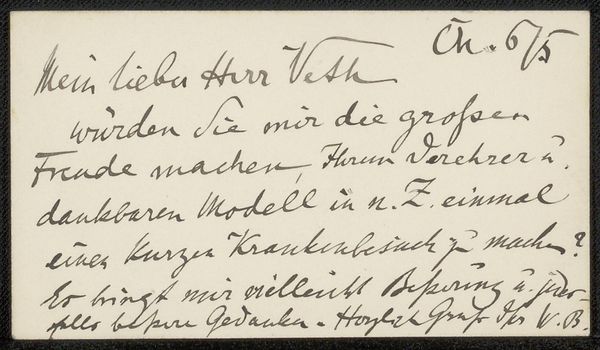 Ch. 6/5
Mein lieber Herr Veth
würden Sie mir die großen
Freude machen, Ihrem Verehrer u.
dankbaren Modell in n. Z. einmal
einen kurzen Krankenbesuch zu machen?
Es bringt mir vielleicht Beßerung u. jeden-
falls beßere Gedanken. Herzlich Gruß Ihr V. B.